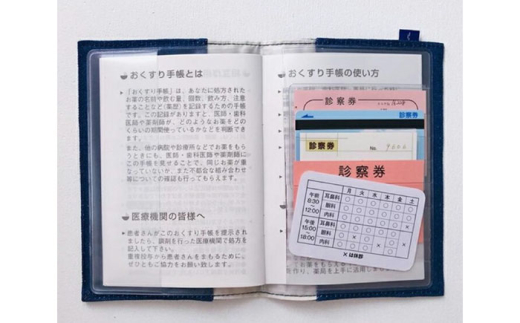 おくすり手帳とは
「おくすり手帳」は、あなたに処方された
お薬の名前や飲む量、回数、飲み方、注意
することなど(薬歴)を記録するための手帳
です。この記録がありますと、医師・歯科
医師や薬剤師が、どのようなお薬をどの
くらいの期間使っているかなどを判断でき
ます。
また、他の病院や診療所などでお薬をもら
うときにも、医師・歯科医師や薬剤師に
この手帳を見せることで、同じお薬が重
なっていないか、また不都合な組み合わせ
等についての確認も行ってもらえます。
医療機関の皆様へ
患者さんがこのおくすり手帳を提示され
ましたら、調剤を行った医療機関で処方を
記入して下さい。
重複投与から患者さんをまもるために、
ぜひともご協力をお願い致します。
おくすり手帳の使い方
診察券
診察券
No.
診察券
月 火 水 木 金 土
午前
8:30
〜
12:00
耳鼻科
眼科
内科
午後
15:00
〜
18:00
耳鼻科
眼科
内科
×は休診